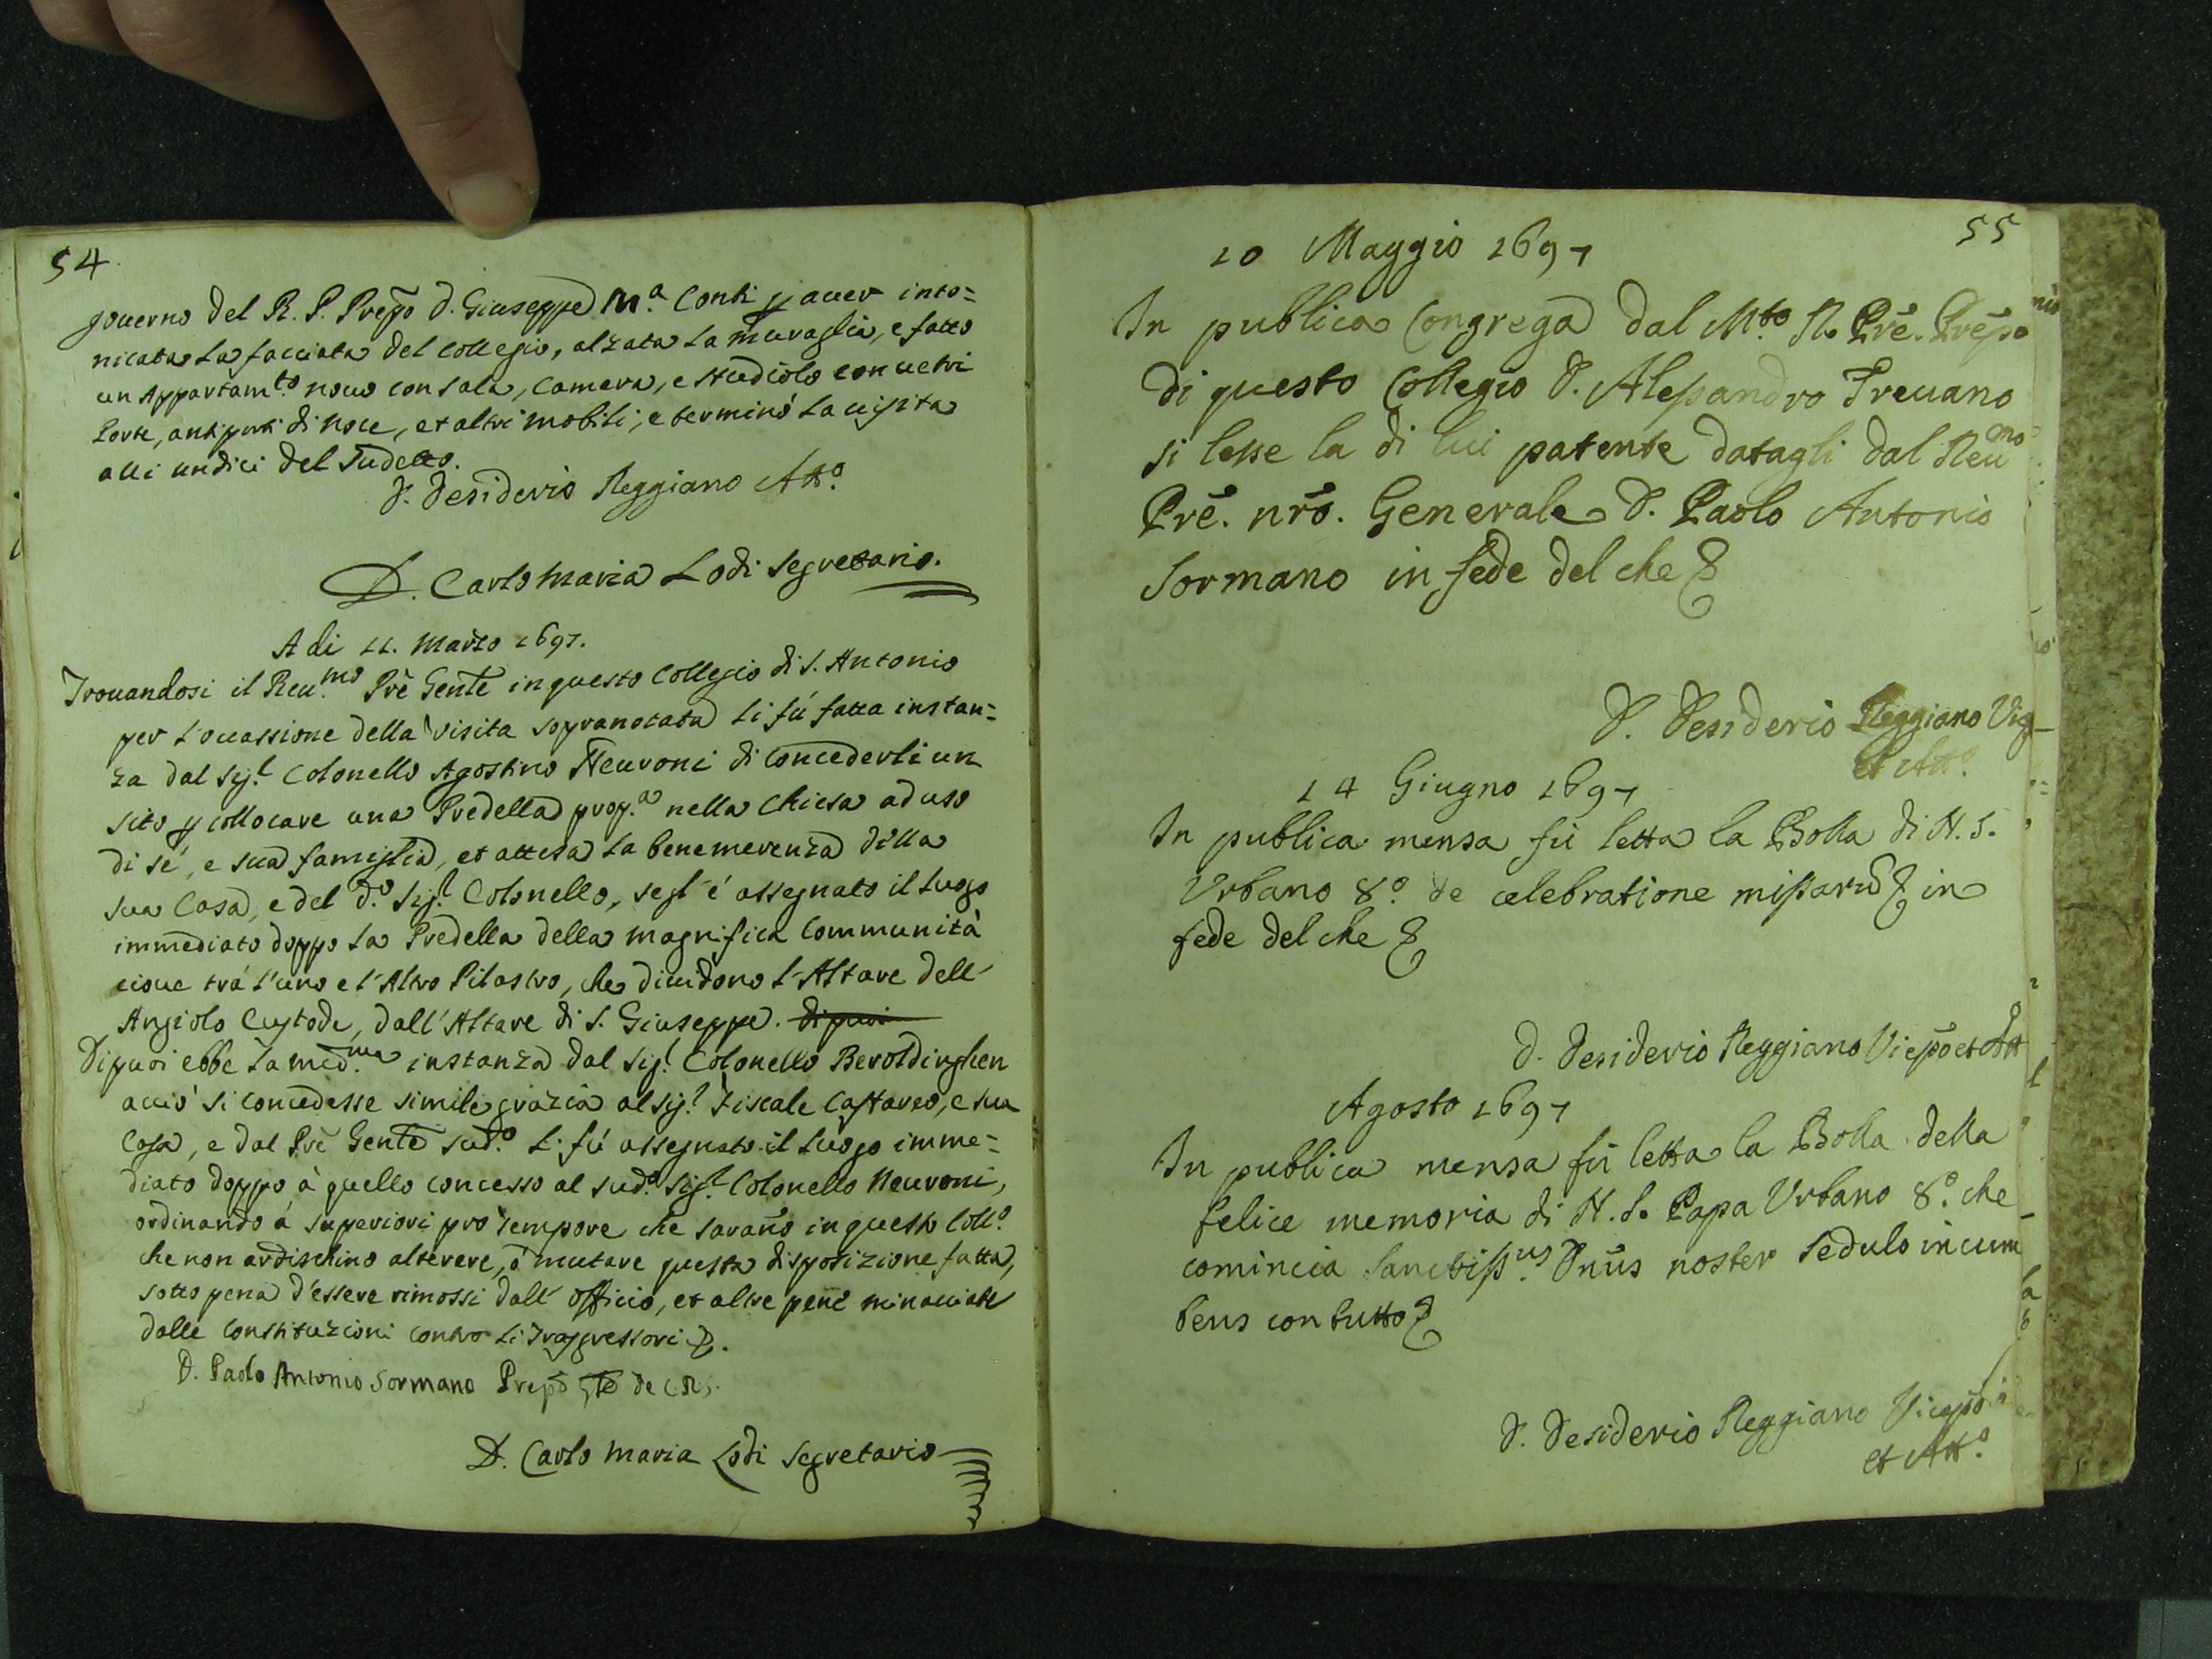 54
governo del R. P. Prep̃o D. Giuseppe M.ª Conti p aver into=
nicata la facciata del Collegio, alzata la muraglia, e fatto
un Appartam.to novo con sala, Camera, e studiolo con vetri
Porte, antiporti di noce, et altri mobili, e terminò la visita
alli undici del sudetto.
D. Desiderio Reggiano Att.º
D. Carlo Maria Lodi Segretario.
A di 11. Marzo 1697.
Trovandosi il Reu.mo Prẽ Genl̃e in questo Collegio di S. Antonio
per l'occassione della visita sopranotata li fú fatta instan=
za dal Sig.r Colonello Agostino Neuroni di concederli un
sito p collocare una Predella prop.ª nella Chiesa ad uso
di sé, e sua famiglia, et attesa la benemerenza della
sua Casa, e del d.º Sig.r Colonello, segl'é assegnato il luogo
immediato doppo la Predella della magnifica Communità
cioue trá l'uno e l'Altro Pilastro, che dividono l'Altare dell'
Angiolo Custode, dall'Altare di S. Giuseppe. di puoi
Dipuoi ebbe la med.ma instanza dal Sig.r Colonello Beroldinghen
acció si concedesse simile grazia al sig.r Fiscale Castareo, e sua
Casa, e dal Prẽ Genl̃e sud.º li fú assegnato il luogo imme=
diato doppo à quello concesso al sud.º Sig.r Colonello Neuroni,
ordinando á superiori pro tempore che sarañno in questo Coll.º
che non ardischino alterere, ó mutare questa disposizione fatta,
sotto pena d'éssere rimossi dall'officio, et altre pene minacciate
dalle Constituzioni contro li Traggressori &.
D. Paolo Antonio Sormano Prep̃o Gl̃e de C.R.S.
D. Carlo Maria Lodi Segretario
55
10 Maggio 1697
In publica Congrega dal M.to R. Prẽ. Prẽpo
di questo Collegio D. Alessandro Trevano
si lesse la di lui patente datagli dal Reu.mo
Prẽ. nr̃o. Generale D. Paolo Antonio
Sormano in fede del che &
D. Desiderio Reggiano Vic
et Att.º
14 Giugno 1697
In publica mensa fù letta la Bolla di N. S.
Urbano 8.º de celebratione missarũ & in
fede del che &
D. Desiderio Reggiano Vicep̃o et Att
Agosto 1697
In publica mensa fù letta la Bolla della
felice memoria di N. S. Papa Urbano 8.º che
comincia Sanctiss.us Dñus noster sedulo incum
bens con tutto &
D. Desiderio Reggiano Vicep̃o
et Att.º